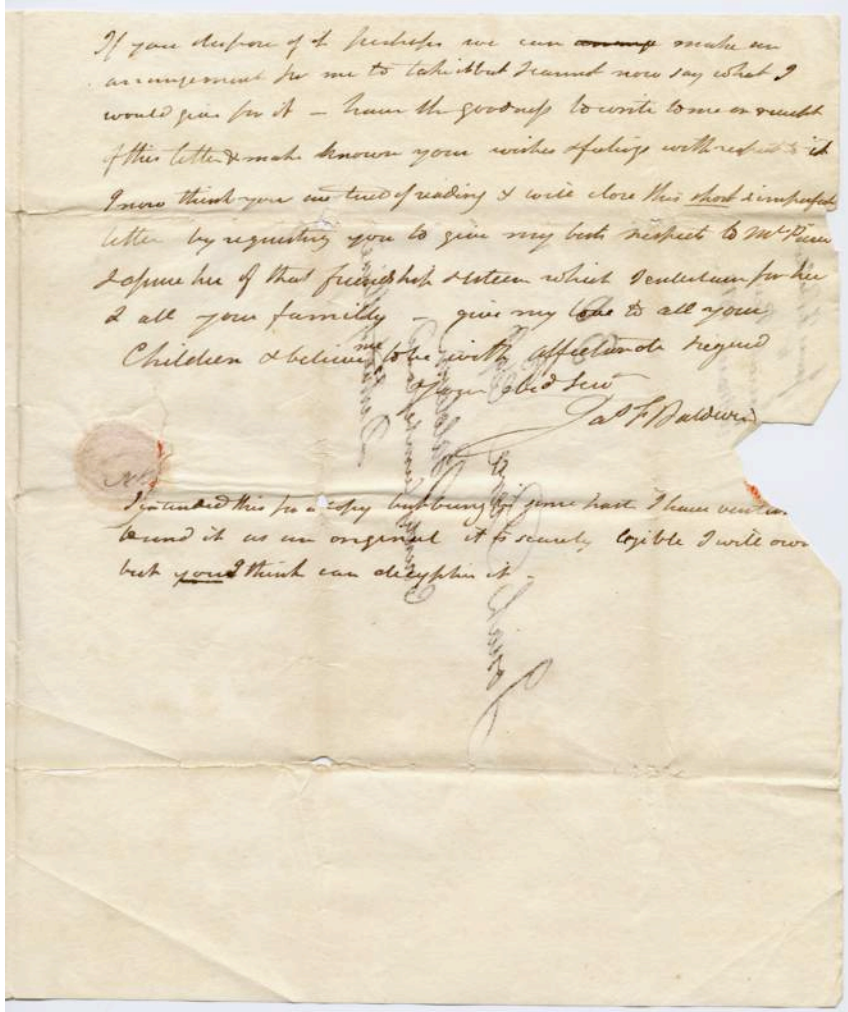 If you dispose of it perhaps we can arrange make an
arrangement for me to take it but I cannot now say what I
would give for it – have the goodness to write to me on receipt
of this letter & make known your wishes & feelings with respect to it
I now think you are tired of reading & will close this short & imperfect
letter by requesting you to give my best respects to Mrs
& assure her of that friendship & esteem which I entertain for her
& all your familly – give my love to all your
Children & believe me to be with affectionate regard
Your obed Servt
Jas F Baldwin
NB
I intended this for a copy but being in some hast I have ventur
to send it as an original it is scarcely legible I will own
but you I think can decypher it –